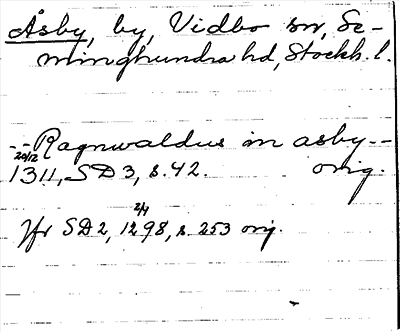 Åsby, by, Vidbo sn, Se-
minghundra hd, Stockh. l.
-- Ragnwaldus in asby --
20/12
1311, SD 3, s. 42. orig.
2/4
Jfr SD 2, 1298, s. 253 orig.